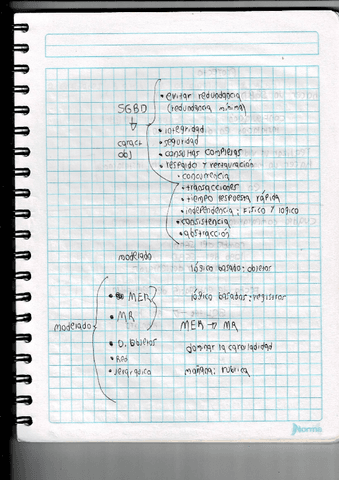 • evitar redundancia
(redundancia mínima)
SGBD
caract
obj
• integridad
• seguridad
• consultas complejas
• respaldo y restauración
• concurrencia
• transacciones
• tiempo respuesta rápida
• independencia: físico y lógico
• consistencia
• abstracción
modelado
lógico basado: objetos
modelado
• MER
lógico basados: registros
• MR
MER → MR
• O. Objetos
dominar la cardinalidad
• Red
• Jerárquico
mañana: rubrica
norma